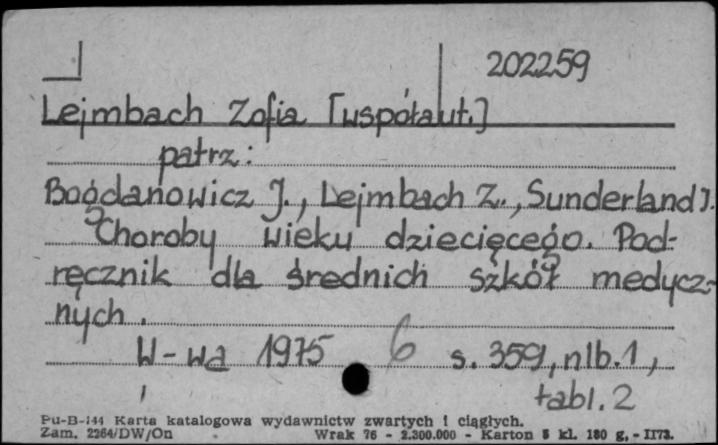 202259
Lejmbach Zofia [współaut.]
patrz:
Bogdanowicz J., Lejmbach Z., Sunderland J.
Choroby wieku dziecięcego. Pod-
ręcznik dla średnich szkół medycz-
nych.
W-wa 1975 6 s. 359, nlb. 1,
tabl. 2
Pu-B-144 Karta katalogowa wydawnictw zwartych i ciągłych.
Zam. 2264/DW/On Wrak 76 - 2.300.000 - Karton 5 kl. 180 g. - II73.